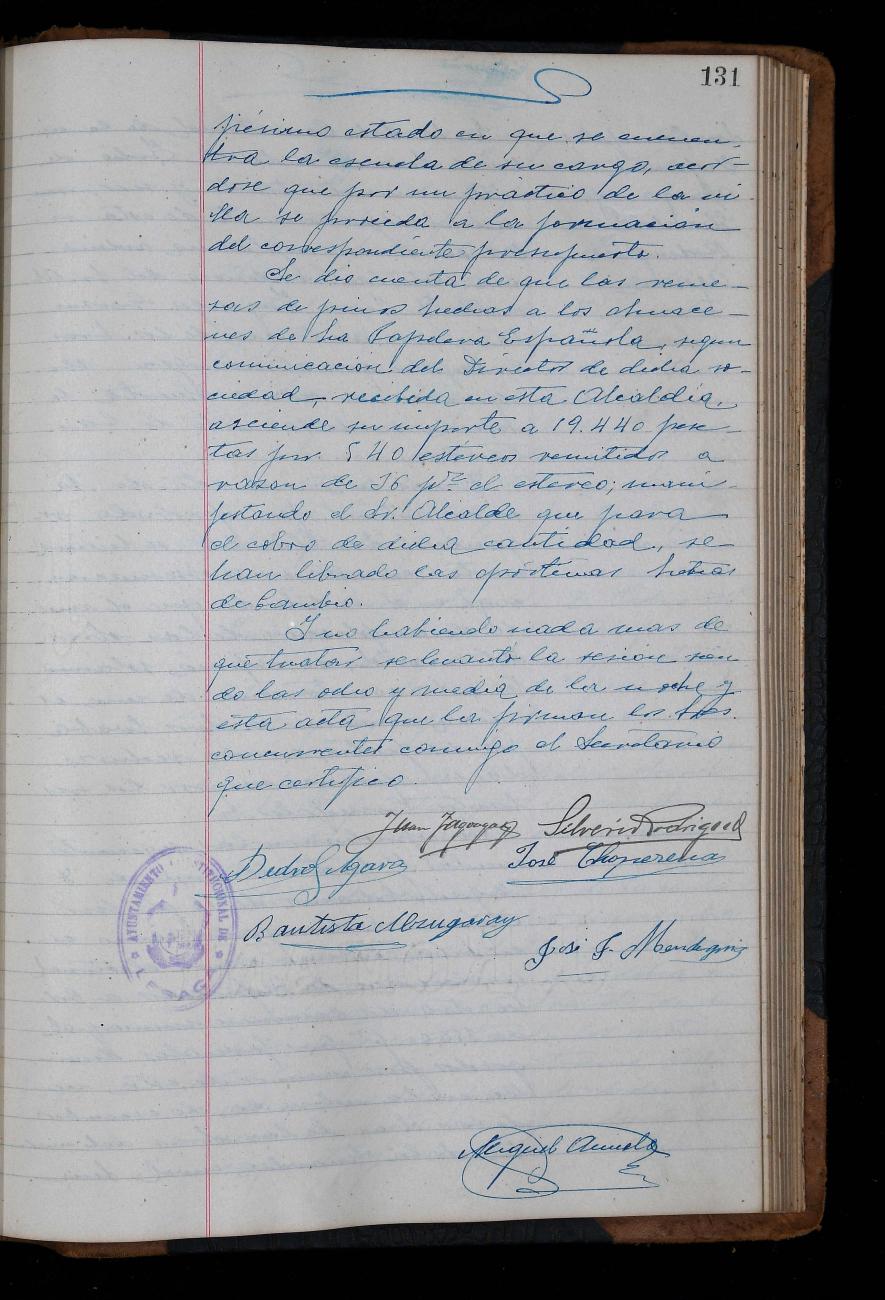 131
pésimo estado en que se encuen-
tra la escuela de su cargo, acor-
dose que por un práctico de la vi
lla se proceda a la formación
del correspondiente presupuesto.
Se dio cuenta de que las reme-
sas de pinos hechas a los almace-
nes de La Papelera Española, segun
comunicación del Director de dicha so-
ciedad, recibida en esta Alcaldía,
asciende su importe a 19.440 pese-
tas por 540 estéreos remitidos a
razon de 36 pts el estereo; mani-
festando el Sr. Alcalde que para
el cobro de dicha cantidad, se
han librado las oportunas letras
de cambio.
Y no habiendo nada mas de
que tratar se levantó la sesión sien
do las ocho y media de la noche y
esta acta que la firman los Sres.
concurrentes conmigo el Secretario
que certifico.
Juan Silverio Rodriguez
Pedro José Choperena
Bautista
José F.
AYUNTAMIENTO CONSTITUCIONAL DE
LESACA
Miguel